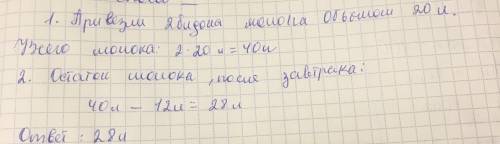 1. Привезли 2 бидона молока объёмом 20 л.
Всего молока: 2·20 л = 40 л
2. Остаток молока, после завтрака:
40 л – 12 л = 28 л
Ответ: 28 л